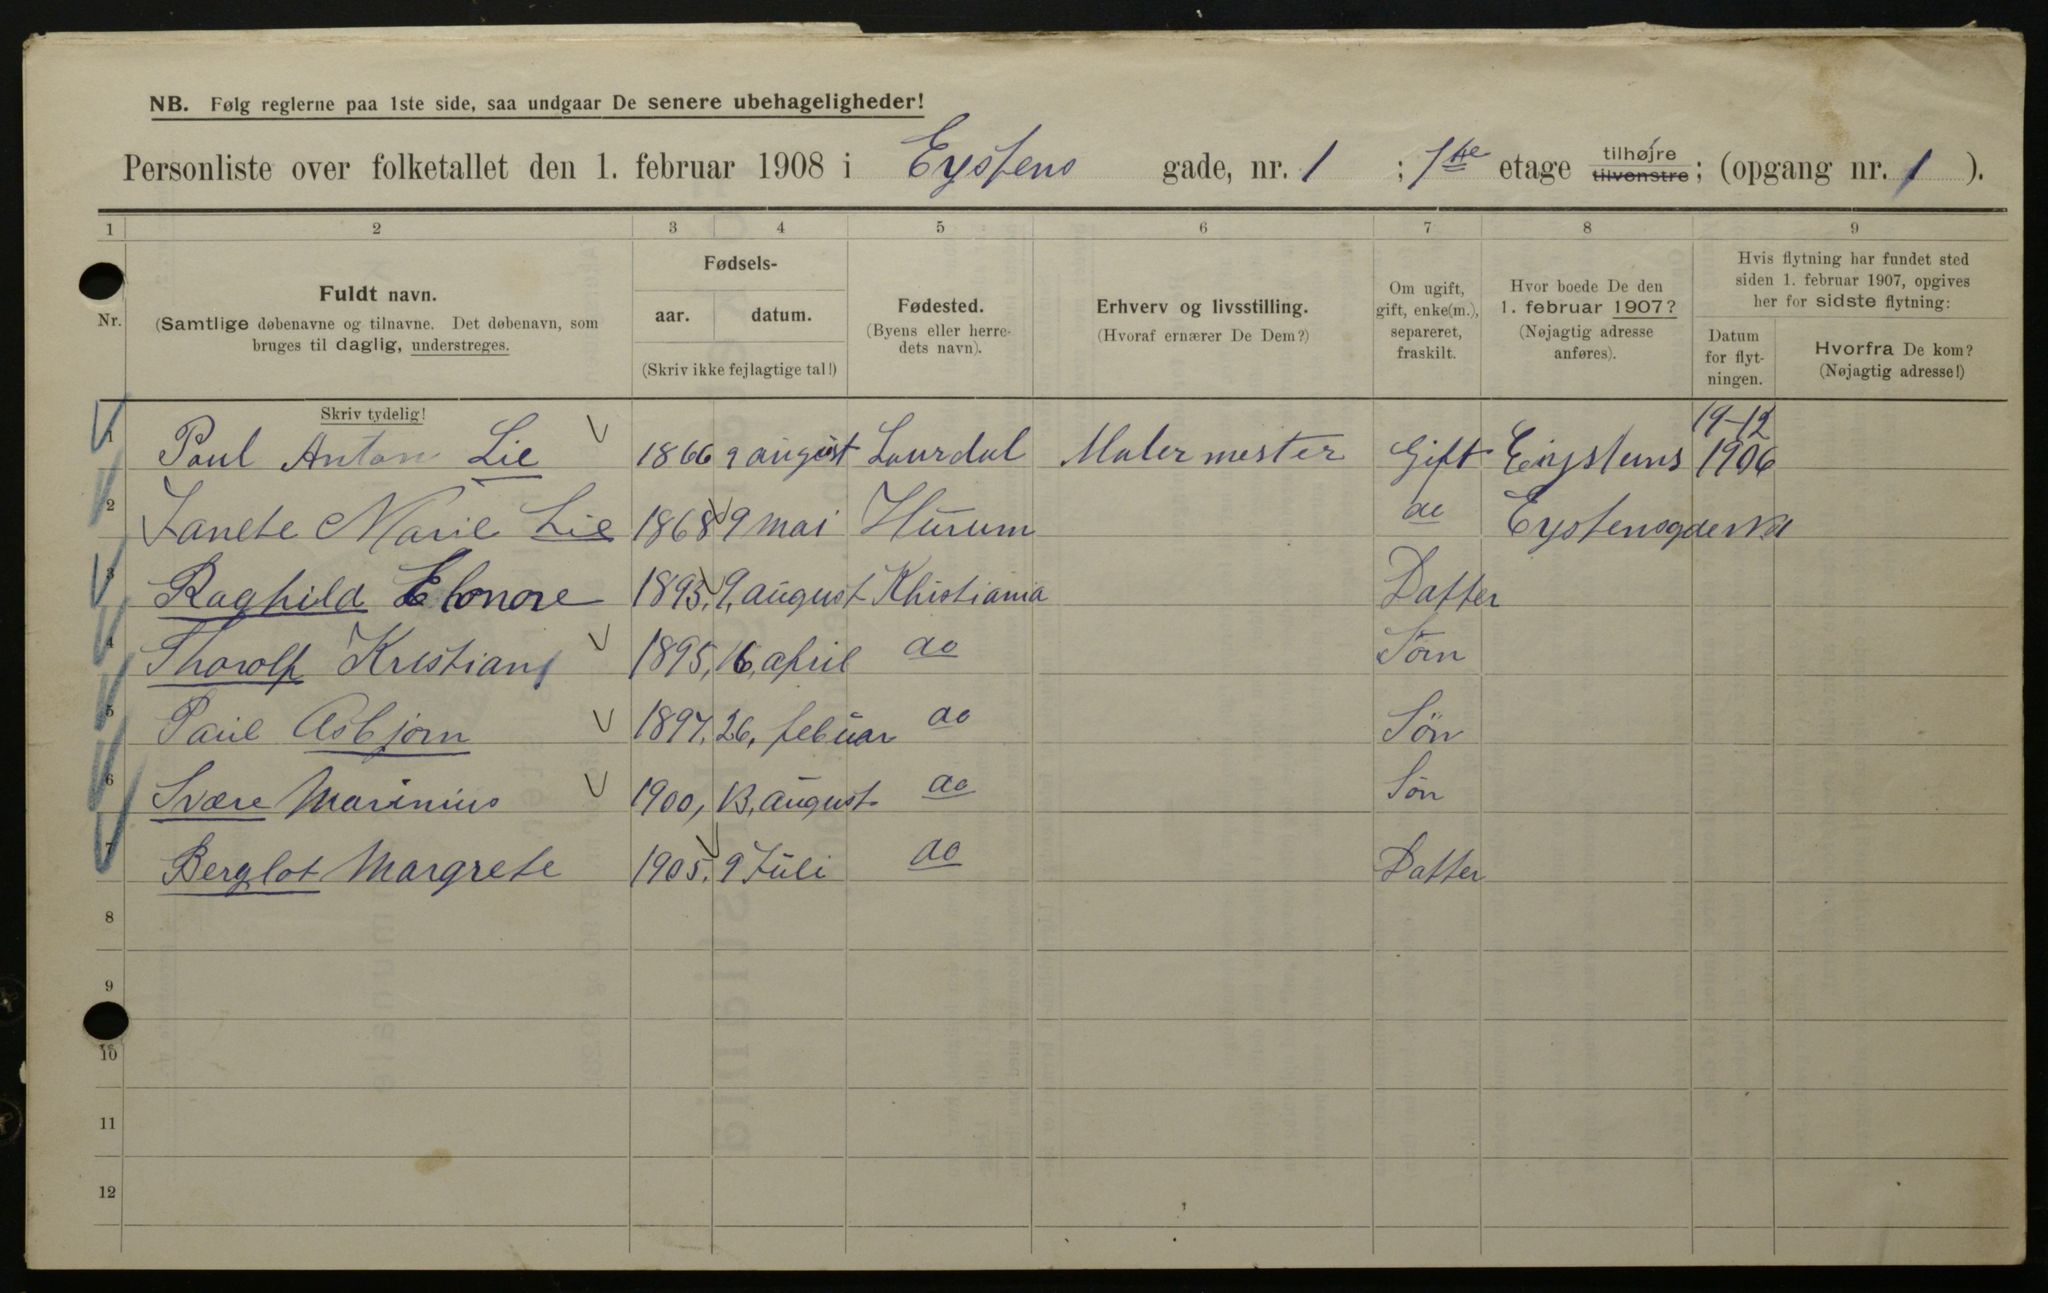 NB. Følg reglerne paa 1ste side, saa undgaar De senere ubehageligheder!
Personliste over folketallet den 1. februar 1908 i Eystens gade, nr. 1 ; 1ste etage tilhøjre tilvenstre; (opgang nr. 1 ).
1 2 3 4 5 6 7 8 9
Nr.
Fuldt navn.
(Samtlige døbenavne og tilnavne. Det døbenavn, som
bruges til daglig, understreges.
Skriv tydelig!
Fødsels-
aar. datum.
(Skriv ikke fejlagtige tal!)
Fødested.
(Byens eller herre-
dets navn).
Erhverv og livsstilling.
(Hvoraf ernærer De Dem?)
Om ugift,
gift, enke(m.),
separeret,
fraskilt.
Hvor boede De den
1. februar 1907?
(Nøjagtig adresse
anføres).
Hvis flytning har fundet sted
siden 1. februar 1907, opgives
her for sidste flytning:
Datum
for flyt-
ningen.
Hvorfra De kom?
(Nøjagtig adresse!)
1 Paul Anton Lie 1866 9 august Laurdal Maler mester Gift Eiystens 19-12 1906
2 Janete Marie Lie 1868 9 mai Hurum do Eystensgde No 1
3 Raghild Elonore 1893, 9, august Khistiania Datter
4 Thorolf Kristian 1895, 16, april do Sön
5 Paul Asbjørn 1897, 26, febuar do Sön
6 Svære Marinius 1900, 13, august do Sön
7 Berglot Margrete 1905, 9 Juli do Datter
8
9
10
11
12